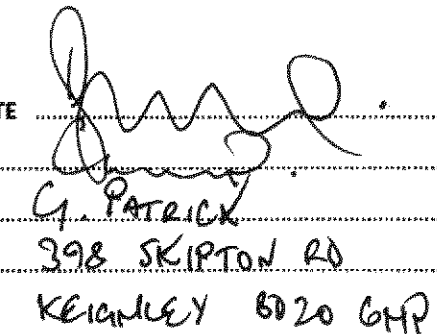 TE
G. PATRICK
398 SKIPTON RD
KEIGHLEY BD20 6HP